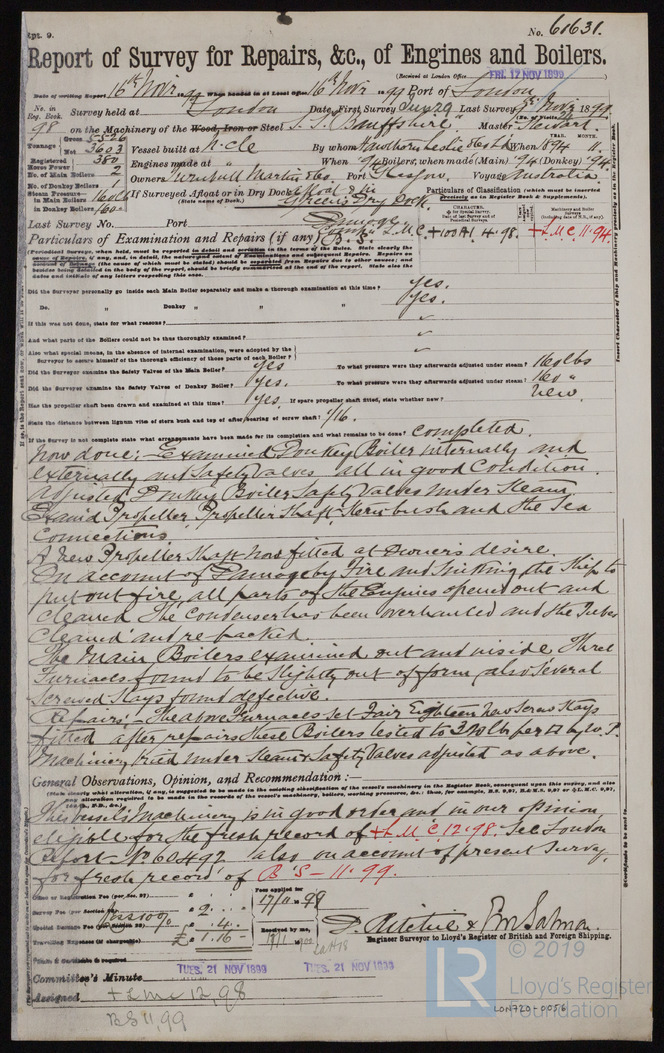 Rpt. 9.
No. 61631.
Report of Survey for Repairs, &c., of Engines and Boilers.
(Received at London Office FRI. 17 NOV 1899
Date of writing Report 16th Novr 1899 When handed in at Local Office 16th Novr 1899 Port of London
No. in Reg. Book. Survey held at London Date, First Survey July 29 Last Survey Novr 1899
98 on the Machinery of the Wood, Iron or Steel S.S. "Banffshire" Master Stewart
Tonnage Gross 5526
Net 3603
Vessel built at N.cle By whom Hawthorn Leslie & Co Ld When 1894 11
Registered Horse Power 380
Engines made at " When '94 Boilers, when made (Main) '94 (Donkey) '94
No. of Main Boilers 2
Owners Turnbull Martin & Co. Port Glasgow Voyage Australia
No. of Donkey Boilers 1
Steam Pressure in Main Boilers 160 lb
in Donkey Boilers 160
If Surveyed Afloat or in Dry Dock Afloat & in Green's Dry Dock
(State name of Dock.)
Particulars of Classification (which must be inserted precisely as in Register Book & Supplements).
Last Survey No. Port
Damage
Particulars of Examination and Repairs (if any) Compn L.M.C. & B.S.
+100A1. 4.98. +L.M.C. 11.94.
Did the Surveyor personally go inside each Main Boiler separately and make a thorough examination at this time? Yes.
Do. " Donkey " " " Yes.
If this was not done, state for what reasons?
And what parts of the Boilers could not be thus thoroughly examined?
Also what special means, in the absence of internal examination, were adopted by the
Surveyor to assure himself of the thorough efficiency of those parts of each Boiler?
Did the Surveyor examine the Safety Valves of the Main Boiler? Yes To what pressure were they afterwards adjusted under steam? 160 lbs
Did the Surveyor examine the Safety Valves of Donkey Boiler? Yes. To what pressure were they afterwards adjusted under steam? 160 "
Has the propeller shaft been drawn and examined at this time? Yes If spare propeller shaft fitted, state whether new? New.
State the distance between lignum vitæ of stern bush and top of after bearing of screw shaft? 1/16.
If the Survey is not complete state what arrangements have been made for its completion and what remains to be done? Completed.
Now done: Examined Donkey Boiler internally and
externally and Safety Valves all in good Condition.
Adjusted Donkey Boiler Safety Valves under Steam
Exam'd Propeller, Propeller Shaft, Stern bush and the Sea
Connections.
A New Propeller Shaft now fitted at Owner's desire.
On account of Damage by Fire and Sinking the Ship to
put out fire, all parts of the Engines opened out and
cleaned The Condenser has been overhauled and the Tubes
cleaned and re-packed.
The Main Boilers examined out and inside Three
Furnaces found to be slightly out of form, also several
screwed stays found defective.
Repairs:- The above Furnaces set Fair Eighteen New Screw Stays
fitted after repairs these Boilers tested to 320 lb per □ by W.P.
Machinery tried under Steam & Safety Valves adjusted as above.
General Observations, Opinion, and Recommendation:—
This vessel's Machinery is in good order and in our opinion
eligible for the fresh record of +L.M.C. 12.98. See London
Report No 60492 also on account of present Survey,
for fresh record of B S - 11.99.
Fees applied for 17/11 1899
Received by me,
Survey Fee (per Section) £ 2 " -
less 10% 4 -
Travelling Expenses (if chargeable) £ 1.16 -
P. Ritchie & Salmon.
Engineer Surveyor to Lloyd's Register of British and Foreign Shipping.
TUES. 21 NOV 1899
TUES. 21 NOV 1899
Committee's Minute
Assigned + L.M.C. 12,98
B S 11,99
© 2019
LR
Lloyd's Register
Foundation
LON720-0056